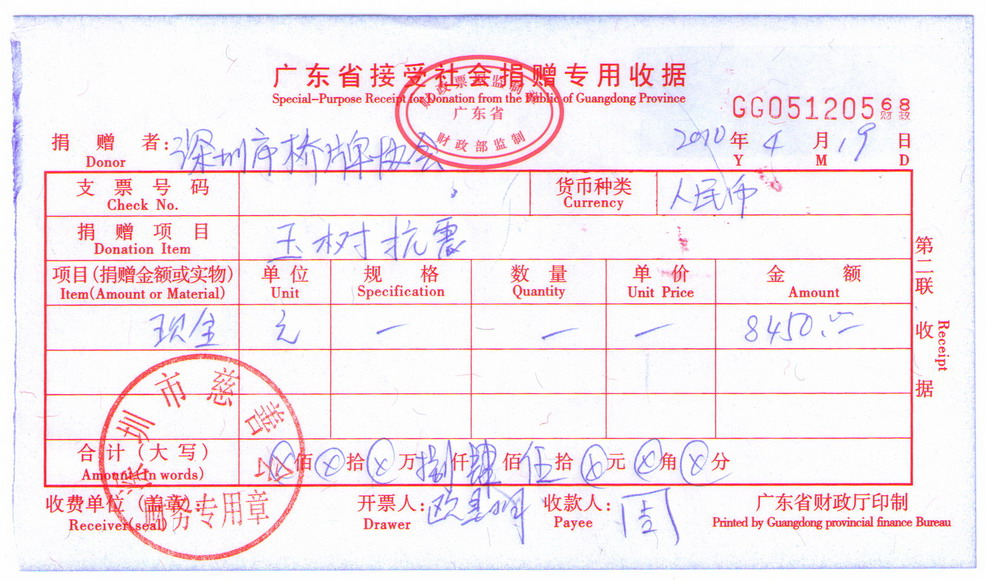 广东省接受社会捐赠专用收据
Special-Purpose Receipt for Donation from the Public of Guangdong Province
财政票据监制章
广东省
财政部监制
GG05120568
财政
捐赠者: 深圳市桥牌协会 2010 年 4 月 19 日
Donor Y M D
支票号码 货币种类 人民币
Check No. Currency
捐赠项目 玉树抗震
Donation Item
项目(捐赠金额或实物) 单位 规格 数量 单价 金额
Item(Amount or Material) Unit Specification Quantity Unit Price Amount
现金 元 — — — 8450.00
合计(大写) ⊗佰⊗拾⊗万捌仟肆佰伍拾⊗元⊗角⊗分
Amount(In words)
收费单位(盖章): 开票人: 欧 收款人: 周 广东省财政厅印制
Receiver(seal) Drawer Payee Printed by Guangdong provincial finance Bureau
深圳市慈善会
财务专用章
第二联 收据
Receipt